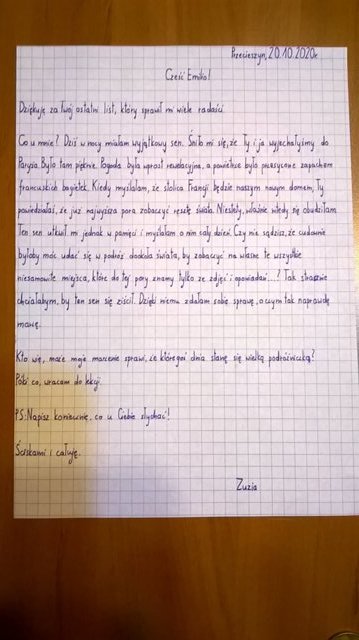 Przecieszyn, 20.10.2020r.
Cześć Emilko!
Dziękuję za Twój ostatni list, który sprawił mi wiele radości.
Co u mnie? Dziś w nocy miałam wyjątkowy sen. Śniło mi się, że Ty i ja wyjechałyśmy do
Paryża. Było tam pięknie. Pogoda była wprost rewelacyjna, a powietrze było przesycone zapachem
francuskich bagietek. Kiedy myślałam, że stolica Francji będzie naszym nowym domem, Ty
powiedziałaś, że już najwyższa pora zobaczyć resztę świata. Niestety, właśnie wtedy się obudziłam.
Ten sen utkwił mi jednak w pamięci i myślałam o nim cały dzień. Czy nie sądzisz, że cudownie
byłoby móc udać się w podróż dookoła świata, by zobaczyć na własne te wszystkie
niesamowite miejsca, które do tej pory znamy tylko ze zdjęć i opowiadań...? Tak strasznie
chciałabym, by ten sen się ziścił. Dzięki niemu zdałam sobie sprawę, o czym tak naprawdę
marzę.
Kto wie, może moje marzenie sprawi, że któregoś dnia stanę się wielką podróżniczką?
Póki co, wracam do lekcji.
PS: Napisz koniecznie, co u Ciebie słychać!
Ściskam i całuję.
Zuzia